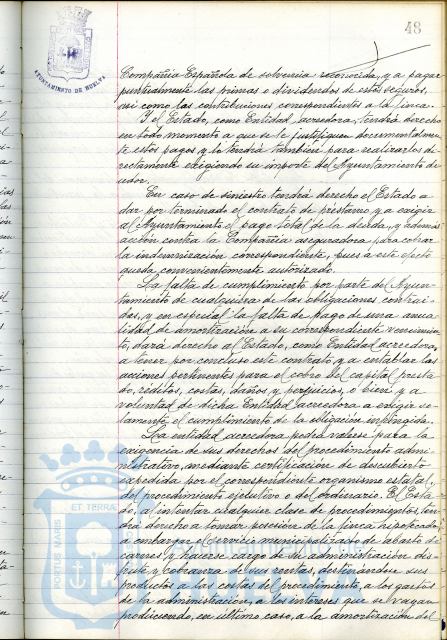 48
AYUNTAMIENTO DE HUELVA
Compañía Española de solvencia reconocida, y a pagar
puntualmente las primas o dividendos de estos seguros,
así como las contribuciones correspondientes a la finca.
Y el Estado, como Entidad acreedora, tendrá derecho
en todo momento a que se le justifiquen documentalmen
te estos pagos y lo tendrá también para realizarlos di-
rectamente exigiendo su importe del Ayuntamiento de
udor.
En caso de siniestro tendrá derecho el Estado a
dar por terminado el contrato de préstamo y a exigir
al Ayuntamiento el pago total de la deuda, y además
acción contra la Compañía aseguradora para cobrar
la indemnización correspondiente, pues a este efecto
queda convenientemente autorizado.
La falta de cumplimiento por parte del Ayun-
tamiento de cualquiera de las obligaciones contraí-
das, y en especial la falta de pago de una anua-
lidad de amortización a su correspondiente vencimien
to, dará derecho al Estado, como Entidad acreedora,
a tener por concluso este contrato, y a entablar las
acciones pertinentes para el cobro del capital presta-
do, réditos, costas, daños y perjuicios, o bien y a
voluntad de dicha Entidad acreedora a exigir so-
lamente el cumplimiento de la obligación infringida.
La entidad acreedora podrá valerse para la
exigencia de sus derechos del procedimiento admi-
nistrativo, mediante certificación de descubierto
expedida por el correspondiente organismo estatal,
del procedimiento ejecutivo o del ordinario. El Esta-
do, al intentar cualquier clase de procedimientos, ten
drá derecho a tomar posesión de la finca hipotecada,
a embargar el servicio municipalizado de abasto de
carnes y hacerse cargo de su administración, dis-
frute y cobranza de sus rentas, destinándose sus
productos a las costas del procedimiento, a los gastos
de la administración, a los intereses que se vayan
produciendo, en último caso, a la amortización del
PORTUS MARIS ET TERRAE